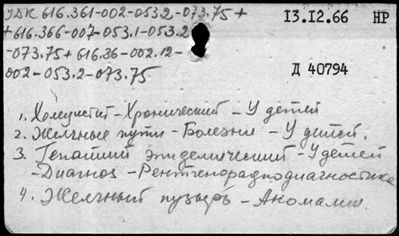 УДК 616.361-002-053.2-073.75 +
13.12.66 НР
+ 616.366-007-053.1-053.2
-073.75 + 616.36-002.12-
002-053.2-073.75
Д 40794
1. Холецистит - Хронический - У детей
2. Желчные пути - Болезни - У детей.
3. Гепатит эпидемический - У детей
- Диагноз - Рентгенорадиодиагностика
4. Желчный пузырь - Аномалии.